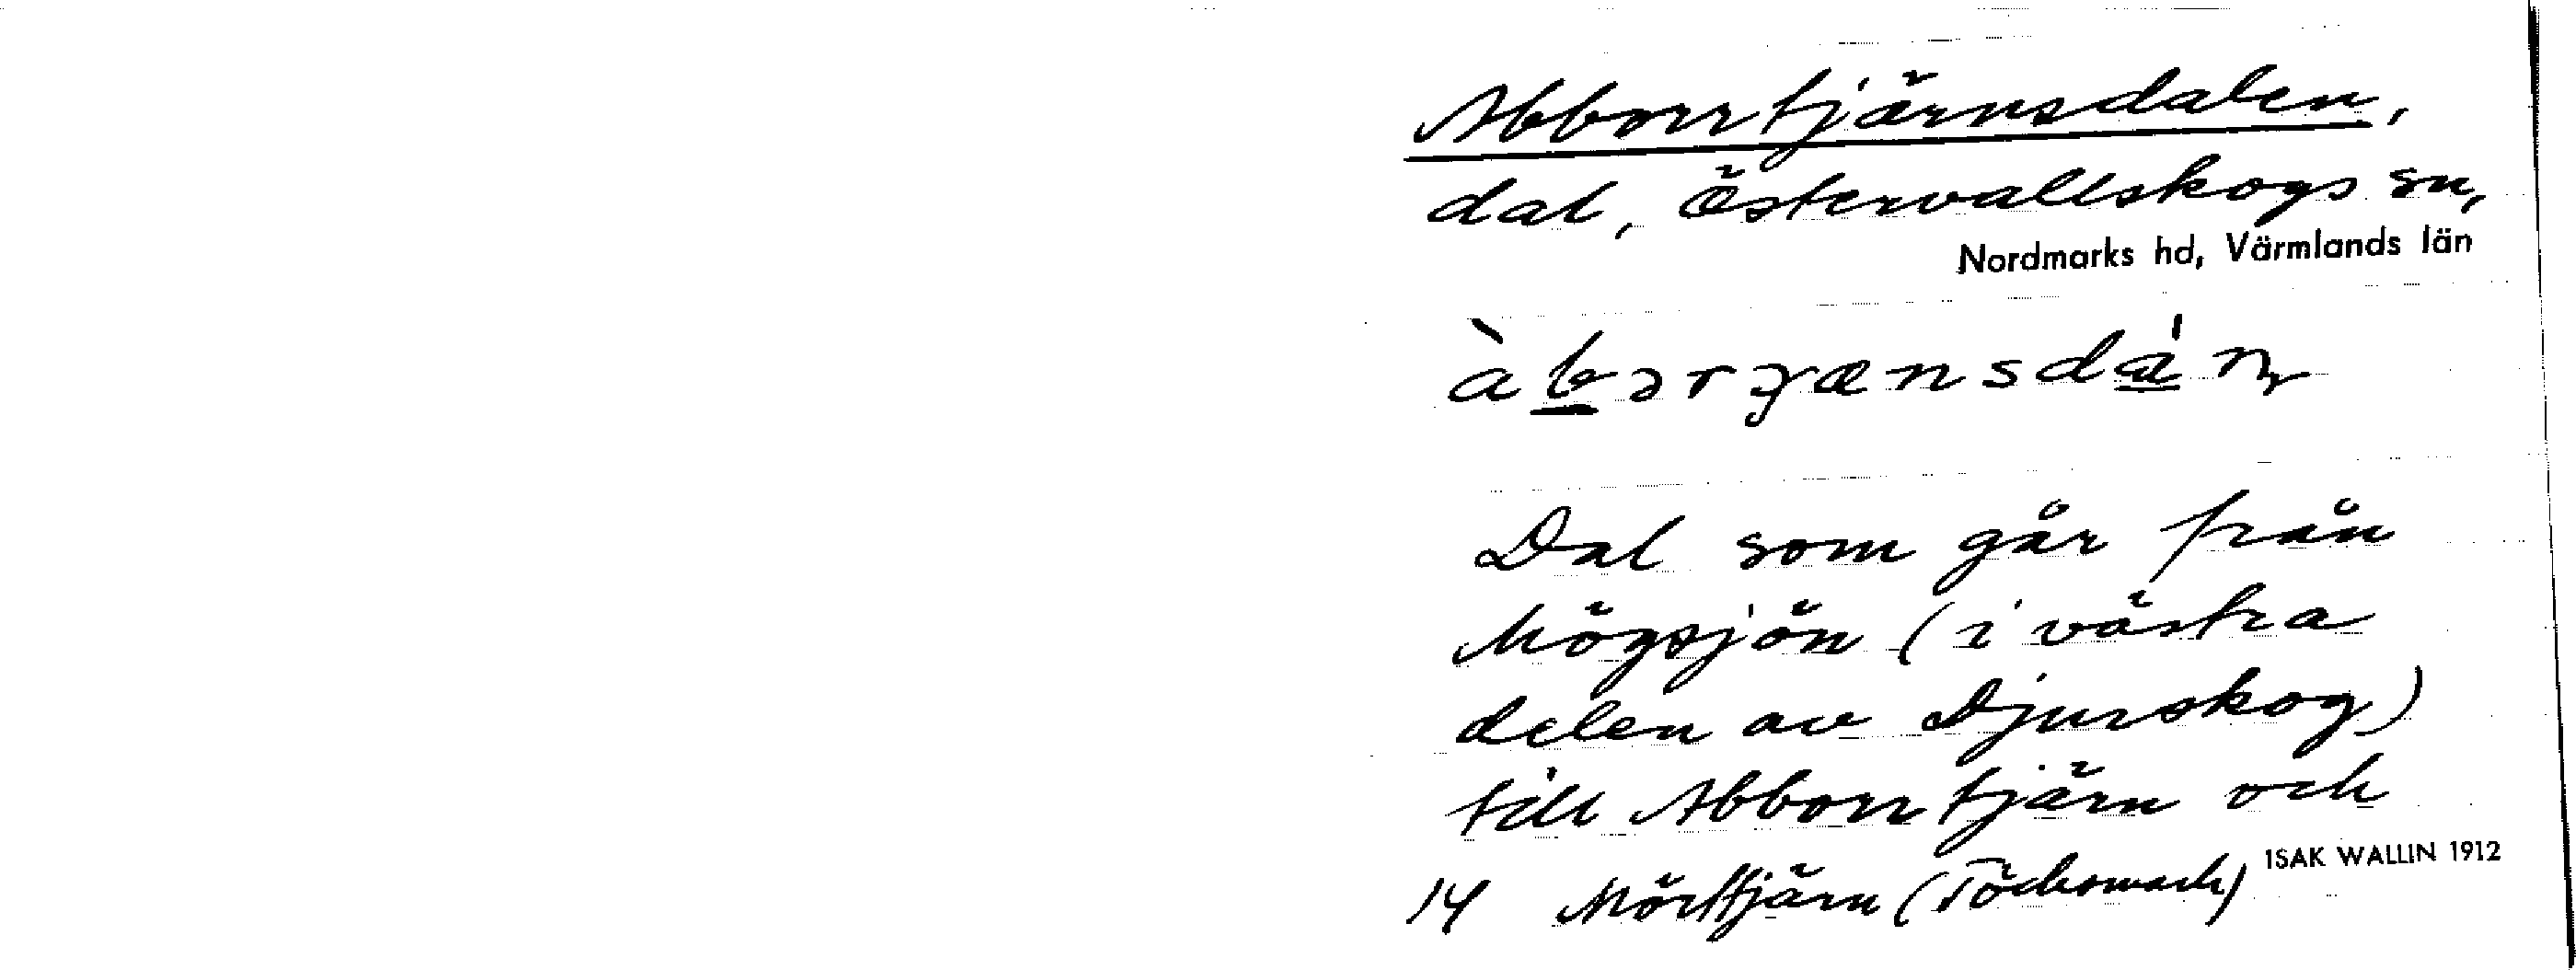 Abborrtjärnsdalen,
dal, Östervallskogs sn,
Nordmarks hd, Värmlands län
Dal som går från
Mögsjön (i västra
delen av Djurskog)
till Abborrtjärn och
14 Mörttjärn (Töcksmark) ISAK WALLIN 1912